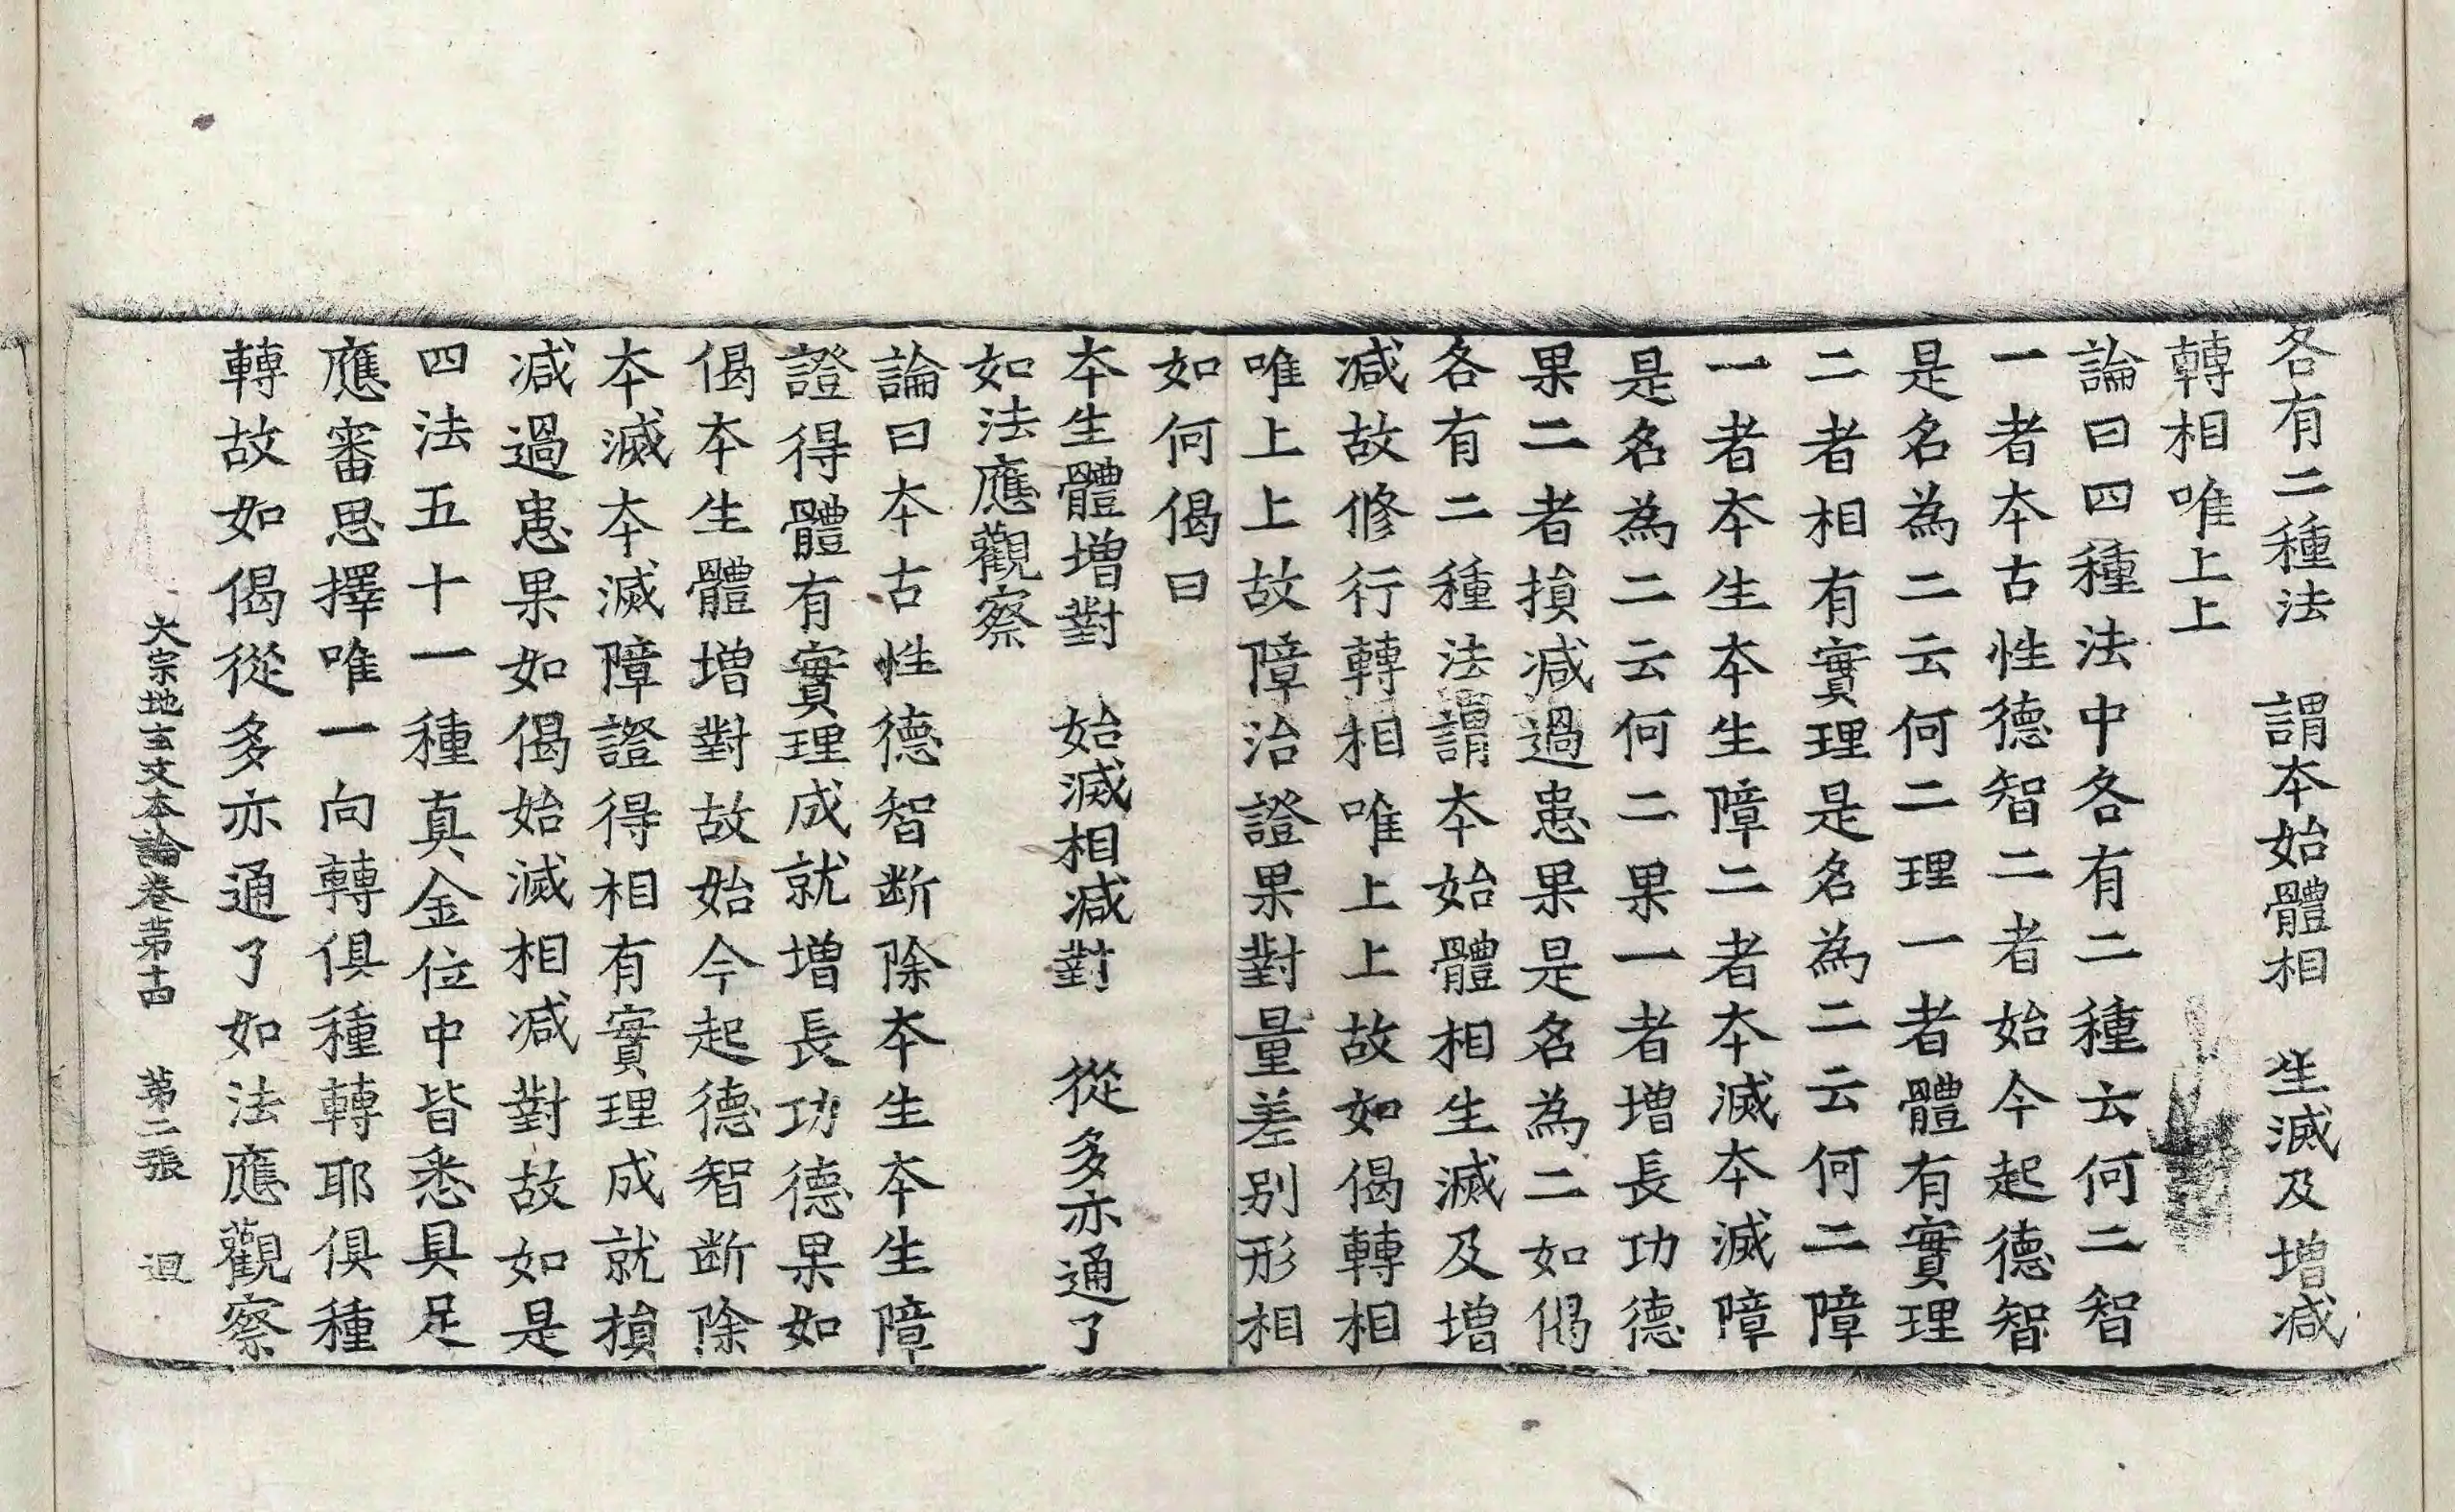 各有二種法　謂本始體相　生滅及增減
轉相唯上上
論曰四種法中各有二種云何二智
一者本古性德智二者始今起德智
是名為二云何二理一者體有實理
二者相有實理是名為二云何二障
一者本生本生障二者本滅本滅障
是名為二云何二果一者增長功德
果二者損減過患果是名為二如偈
各有二種法謂本始體相生滅及增
減故修行轉相唯上上故如偈轉相
唯上上故障治證果對量差別形相
如何偈曰
本生體增對　始滅相減對　從多亦通了
如法應觀察
論曰本古性德智断除本生本生障
證得體有實理成就增長功德果如
偈本生體增對故始今起德智断除
本滅本滅障證得相有實理成就損
減過患果如偈始滅相減對故如是
四法五十一種真金位中皆悉具足
應審思擇唯一向轉俱種轉耶俱種
轉故如偈從多亦通了如法應觀察
大宗地玄文本論卷苐十四　苐二張　迴